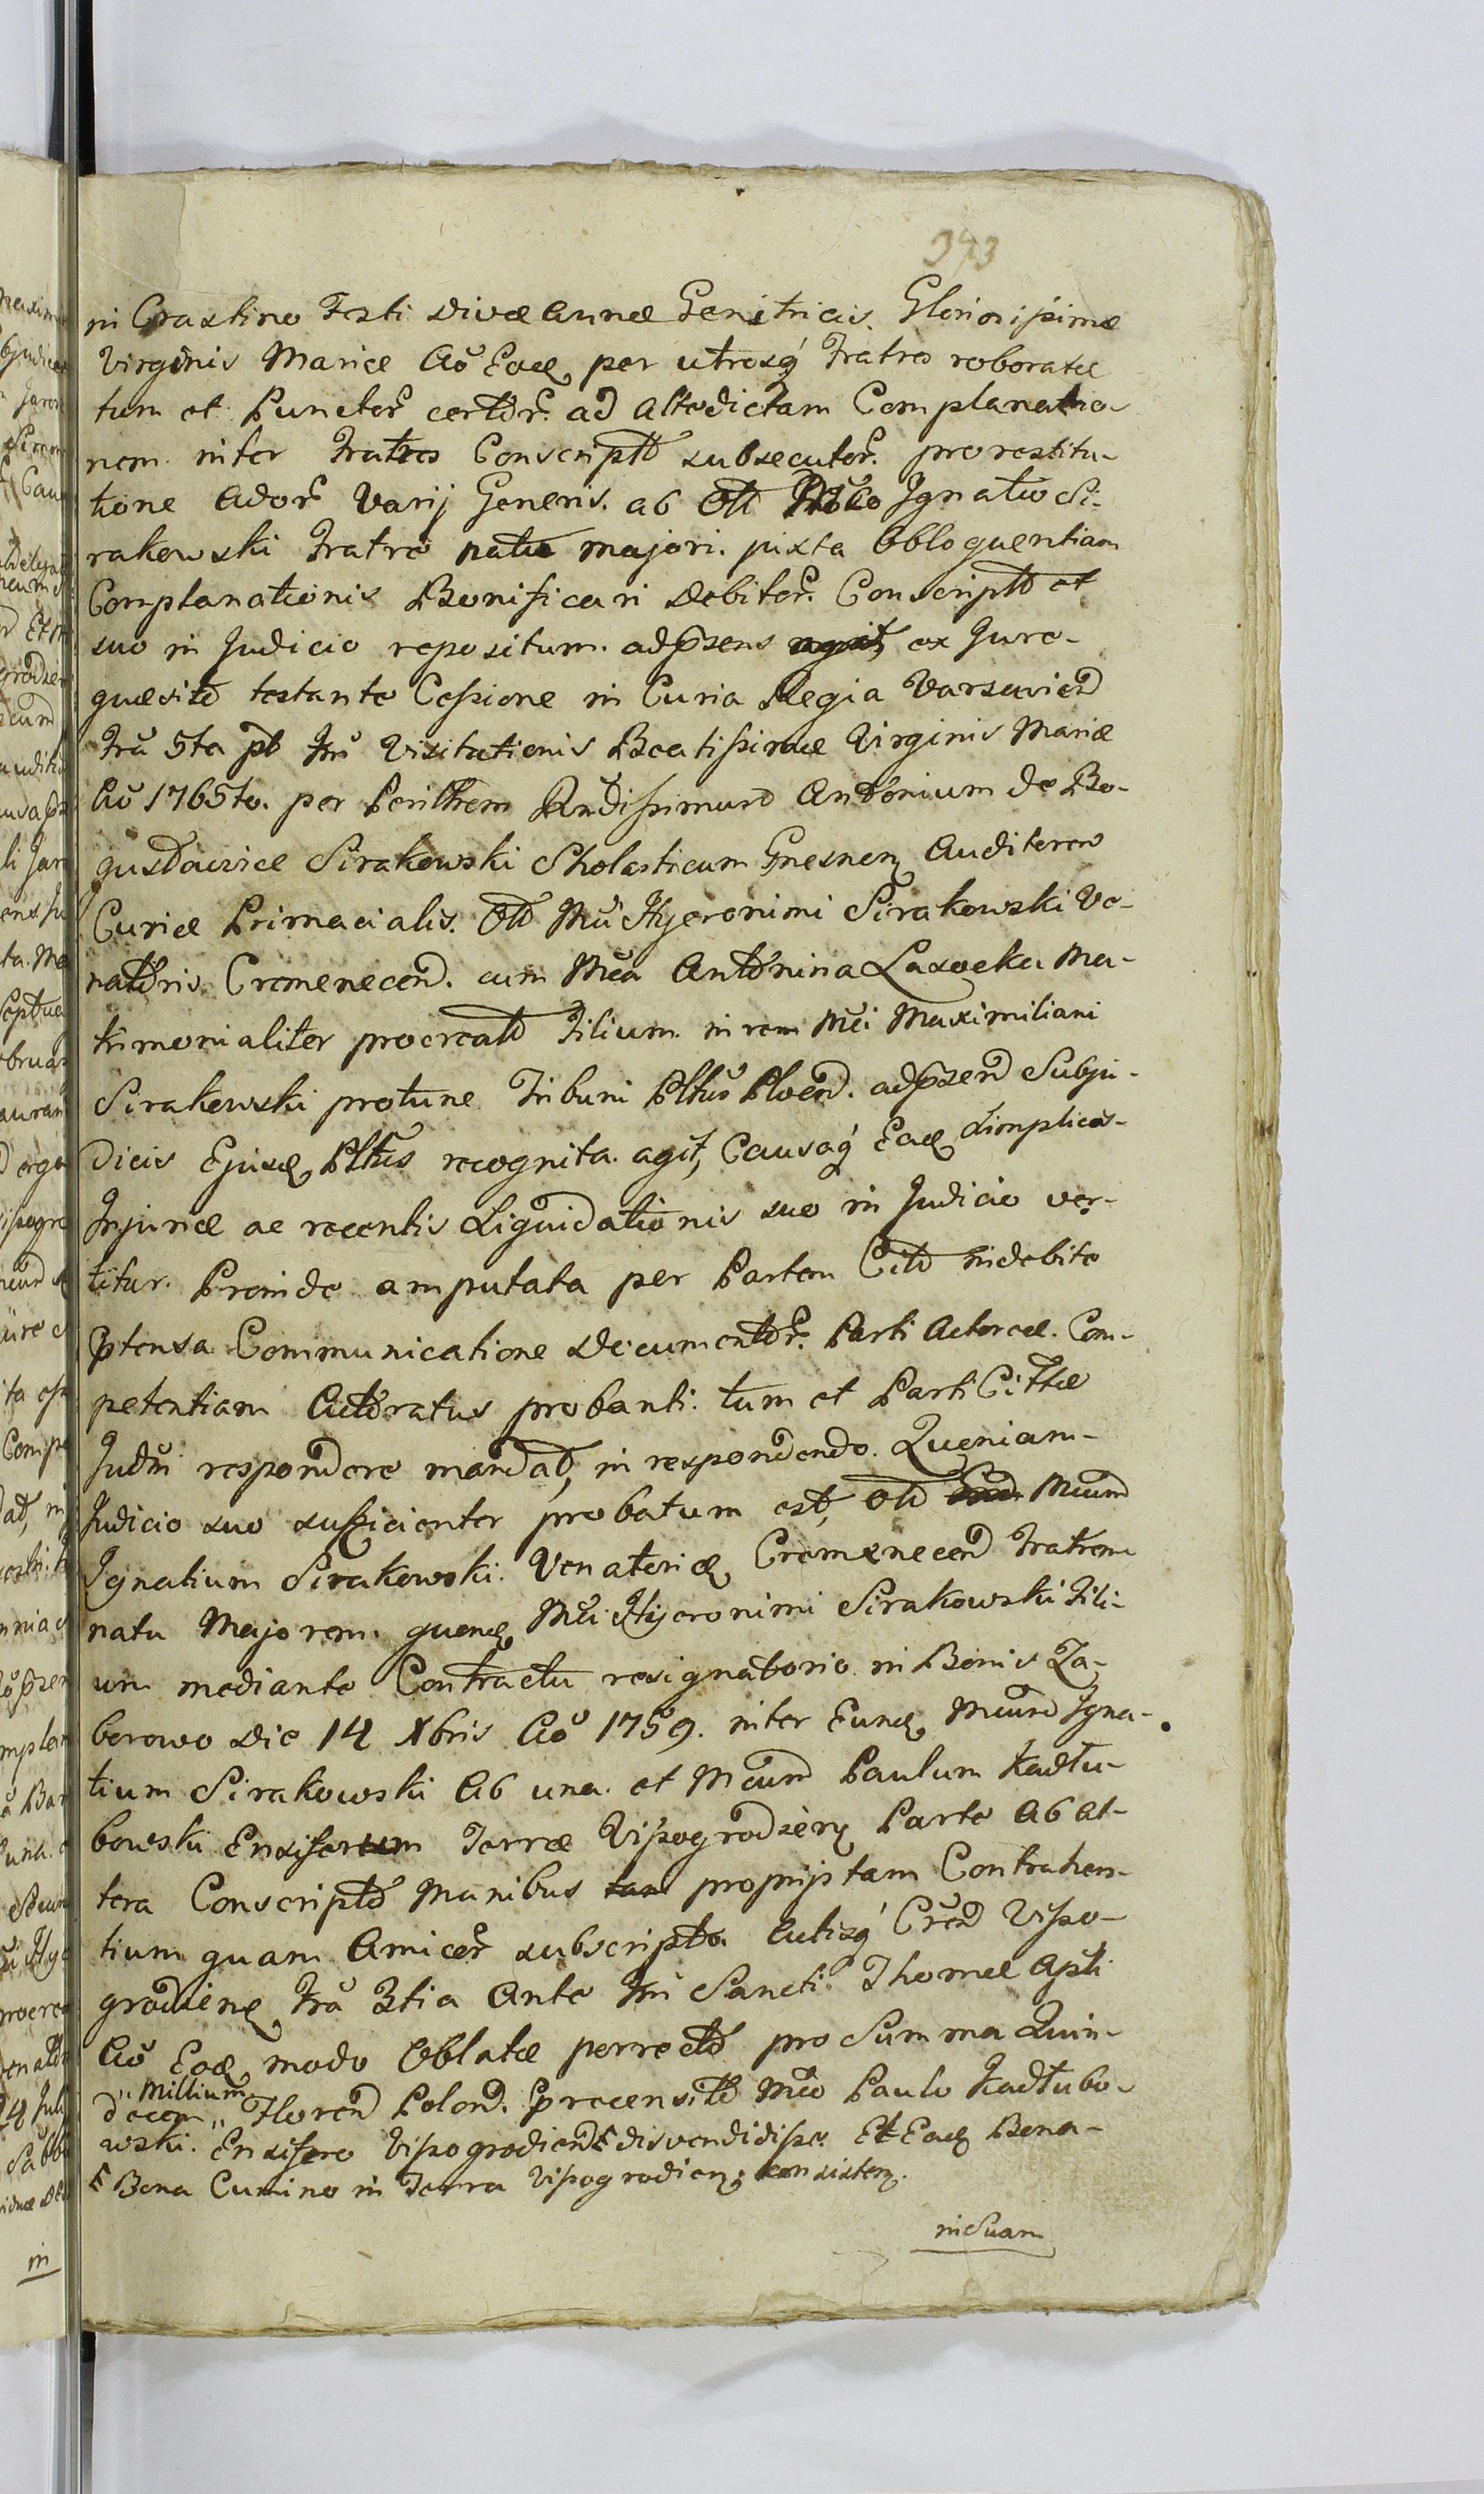 343
in Crastino Festi Divæ Annæ Genitricis Gloriosissimæ
Virginis Mariæ Aō Eod, per utrosq́ Fratres roboratæ
tum et Punctor̃ certor̃ ad altedictam Complanatio-
nem inter Fratres Conscriptã subsecutor̃ pro restitu-
tione Ador̃ Varij Generis ab Ol̃ Ignatio Si-
rakowski Fratre natu majori juxta Obloquentiam
Complanationis Bonificari debitor̃ Conscriptõ et
suo in Judicio repositum adp̃sens ex Jure
quæsitõ testante Cessione in Curia Regia Varsavien̄
Fr̃a 5ta pt̃ Fr̃ Visitationis Beatissimæ Virginis Mariæ
Aō 1765to per Perillrem Rñdissimum Antonium de Bo-
gusławice Sirakowski Scholasticum Gnesnen̄ Auditorem
Curiæ Primacialis. Ol̃ Mc̃i Hyeronimi Sirakowski Ve-
natoris Cremenecen̄ cum Mc̃a Antonina Lasocka Ma-
trimonialiter procreatũ Filium in rem Mc̃i Maximiliani
Sirakowski protunc Tribuni Pltũs Plocen̄ adp̃sen̄ Subju-
dicis Ejusd, Pltũs recognita agit, Causaq́ Ead simplicis
Injuriæ ac recentis Liquidationis suo in Judicio ver-
titur. Proinde amputata per Partem Cit̃ indebite
p̃tensa Communicatione Documentor̃ Parti Actoreæ Com-
petentiam Actoratus probanti tum et Parti Cittæ
Judm̃ respondere mandat, in respondendo. Quoniam
Judicio suo sufficienter probatum est, Ol̃ Mcum̃
Ignatium Sirakowski Venatorid, Cremenecen̄ Fratrem
natu Majorem quond, Mc̃i Hyeronimi Sirakowski Fili-
um mediante Contractu resignatorio in Bonis Za-
borowo die 14 Xbris Aō 1759. inter Eund, Mcum̃ Igna-
tium Sirakowski Ab una et Mcum̃ Paulum Kadłu-
bowski Ensiferum Terræ Vissogrodien̄ Parte Ab al-
tera Conscriptõ Manibus proprijs tam Contrahen-
tium quam Amicor̃ subscripto Actisq́ C̃ren̄ Visso-
grodien̄ Fr̃a 3tia Ante Fr̃ Sancti Thomæ Apl̃i
Aō Eod, modo Oblatæ perrectõ pro Summa Quin-
decem „Millium„ Floren̄ Polon̄. p̃recensitõ Mc̃o Paulo Kadłubo-
wski Ensifero Vissogrodien̄ ꝉ disvendidisse Et Ead, Bona
ꝉ Bona Cumino in Terra Vissogrodien̄ consisten̄.
in Suam